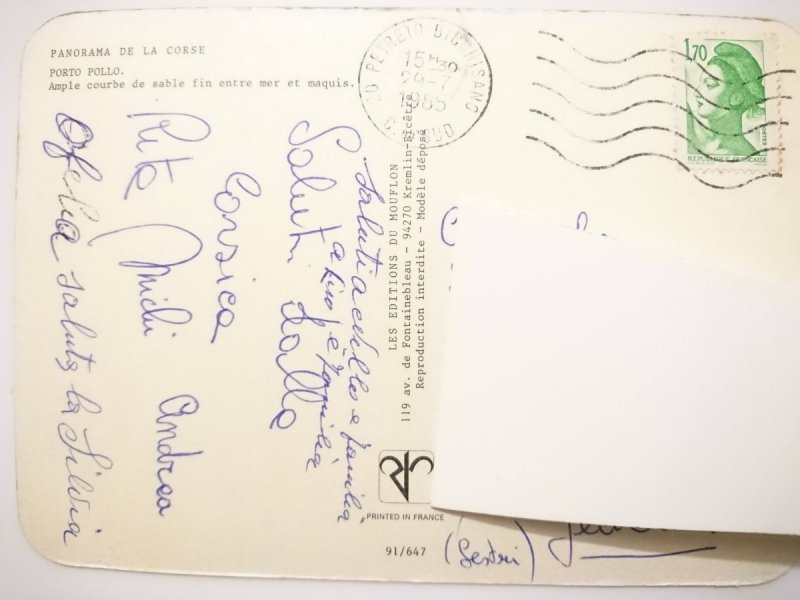 PANORAMA DE LA CORSE
PORTO POLLO.
Ample courbe de sable fin entre mer et maquis.
20 PETRETO BICCHISANO
15 H 30
29-7
1985
C. SUD
1,70
POSTES
REPUBLIQUE FRANÇAISE
Saluti a cirillo e famiglia
a Lino e famiglia
Saluti dalla
Corsica
Rita Michi Andrea
Ofelia saluta la Silvia
LES EDITIONS DU MOUFLON
119 av. de Fontainebleau - 94270 Kremlin-Bicêtre
Reproduction interdite - Modèle déposé
PRINTED IN FRANCE
91/647
(Sestri)